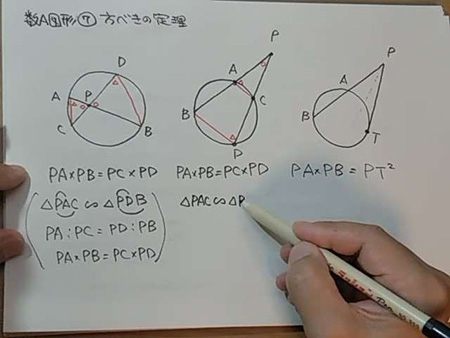 数A図形⑦ 方べきの定理
P
D
A
P
C
B
A
B
C
D
P
A
B
T
PA×PB=PC×PD
PA×PB=PC×PD
PA×PB = PT²
△PAC∽△PDB
△PAC∽△P
PA:PC=PD:PB
PA×PB=PC×PD